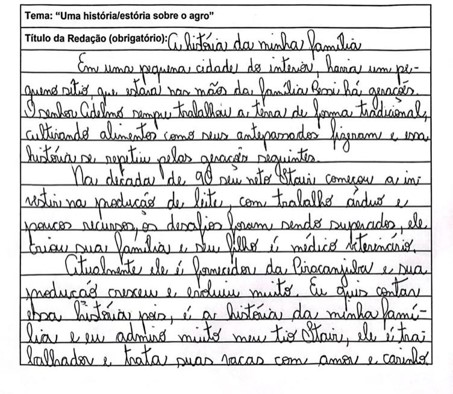 Tema: "Uma história/estória sobre o agro"
Título da Redação (obrigatório): A história da minha família
Em uma pequena cidade do interior, havia um pe-
queno sítio que estava nas mãos da família Rossi há gerações.
O senhor Adelmo sempre trabalhou a terra de forma tradicional,
cultivando alimentos como seus antepassados fizeram e essa
história se repetiu pelas gerações seguintes.
Na década de 90 seu neto Itair começou a in-
vestir na produção de leite, com trabalho árduo e
poucos recursos, os desafios foram sendo superados, ele
criou sua família e seu filho é médico veterinário.
Atualmente ele é fornecedor da Piracanjuba e sua
produção cresceu e evoluiu muito. Eu quis contar
essa história pois, é a história da minha famí-
lia e eu admiro muito meu tio Itair, ele é tra-
balhador e trata suas vacas com amor e carinho